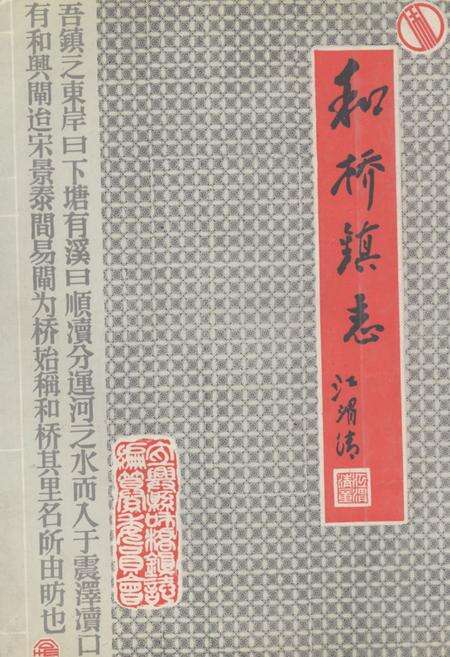 吾鎮之東岸曰下塘有溪曰順瀆分運河之水而入于震澤瀆口
有和興閘迨宋景泰間易閘为桥始稱和桥其里名所由昉也
和桥鎮志
江渭清
宜興縣和橋鎮誌
編纂委員會